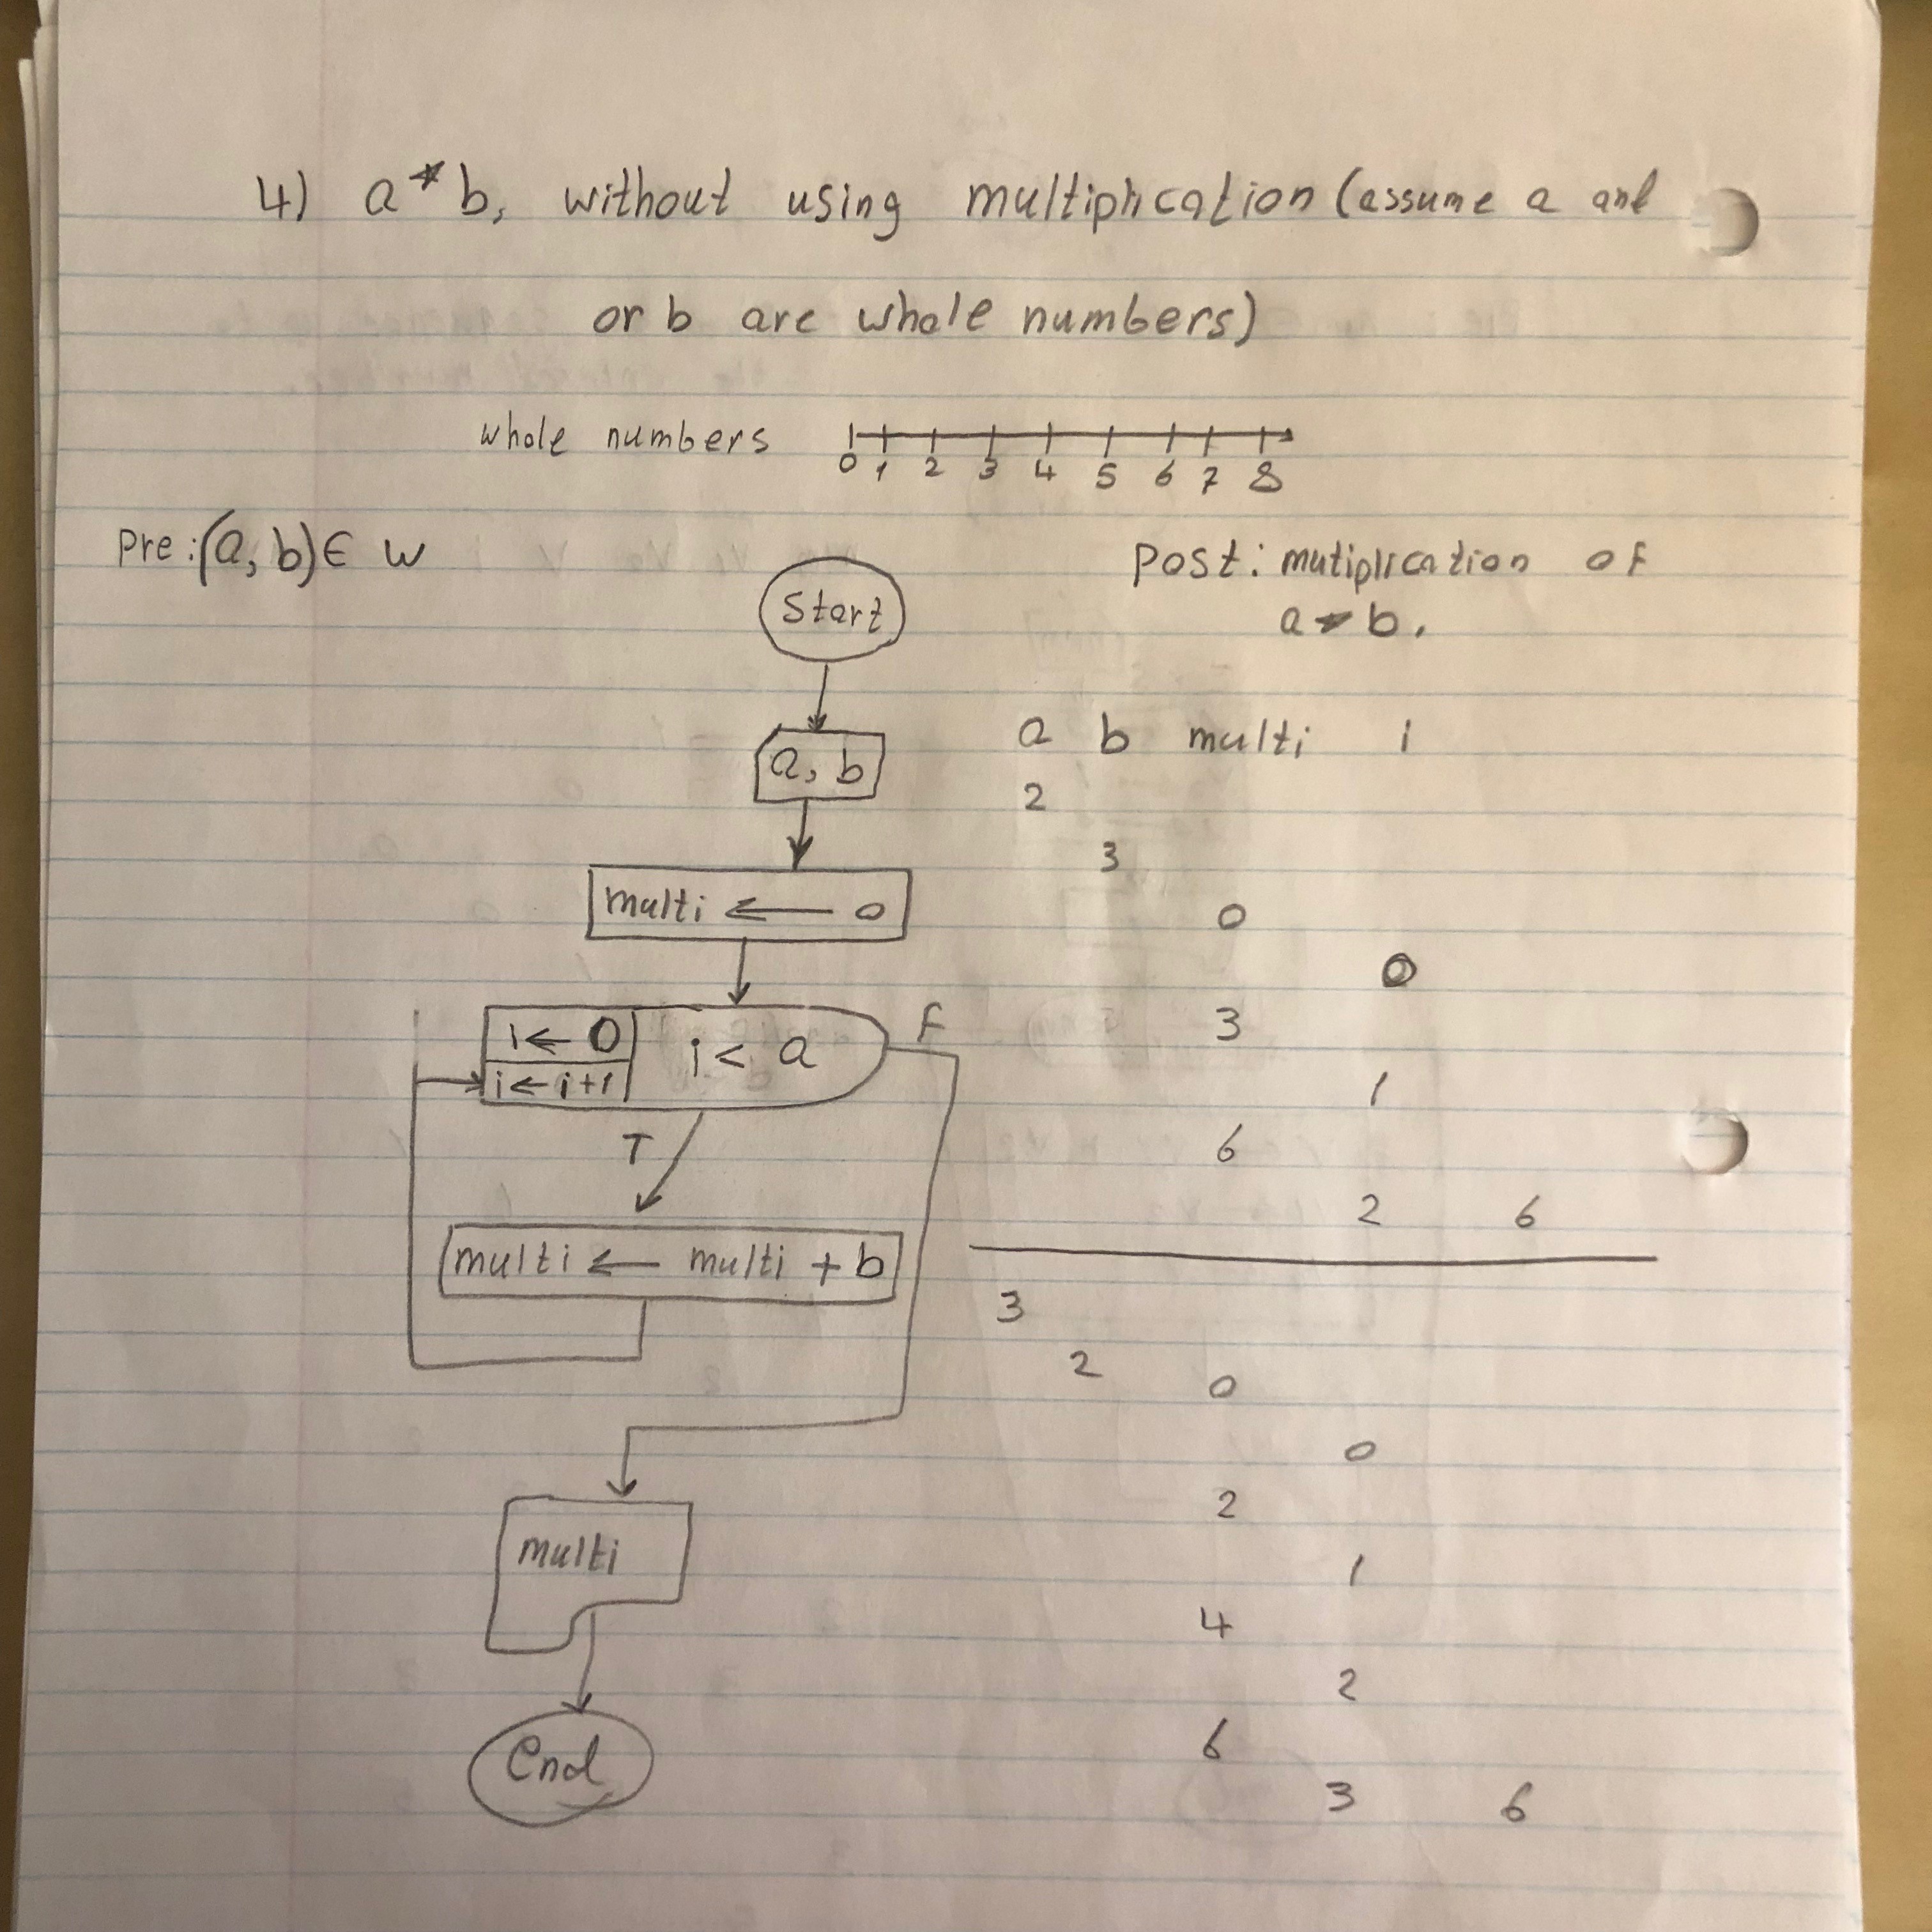 4) a * b, without using multiplication (assume a and
or b are whole numbers)
whole numbers
0 1 2 3 4 5 6 7 8
Pre: (a, b) ∈ W
Post: mutiplication of
a * b.
Start
a, b
multi ← 0
i ← 0
i ← i+1
i < a
F
T
multi ← multi + b
multi
End
a b multi i
2
3
0
0
3
1
6
2 6
3
2 0
0
2
1
4
2
6
3 6